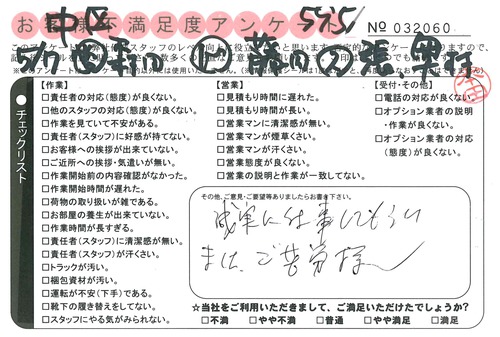 お客様不満足度アンケート
中区
5/5
No 032060
【作業】
□責任者の対応(態度)が良くない。
□他のスタッフの対応(態度)が良くない。
□作業を見ていて不安がある。
□責任者(スタッフ)に好感が持てない。
□お客様への挨拶が出来ていない。
□ご近所への挨拶・気遣いが無い。
□作業開始前の内容確認がなかった。
□作業開始時間が遅れた。
□荷物の取り扱いが雑である。
□お部屋の養生が出来ていない。
□作業時間が長すぎる。
□責任者(スタッフ)に清潔感が無い。
□責任者(スタッフ)が汗くさい。
□トラックが汚い。
□梱包資材が汚い。
□運転が不安(下手)である。
□靴下の履き替えをしてない。
□スタッフにやる気がみられない。
【営業】
□見積もり時間に遅れた。
□見積もり時間が長い。
□営業マンに清潔感が無い。
□営業マンが煙草くさい。
□営業マンが汗くさい。
□営業態度が良くない。
□営業の説明と作業が一致してない。
【受付・その他】
□電話の対応が良くない。
□オプション業者の説明
・作業が良くない。
□オプション業者の対応
(態度)が良くない。
チェックリスト
その他、ご意見・ご要望等ありましたらお書き下さい。
誠実に仕事してもらい
ました、ご苦労様
☆当社をご利用いただきまして、ご満足いただけたでしょうか?
□不満 □やや不満 □普通 □やや満足 □満足